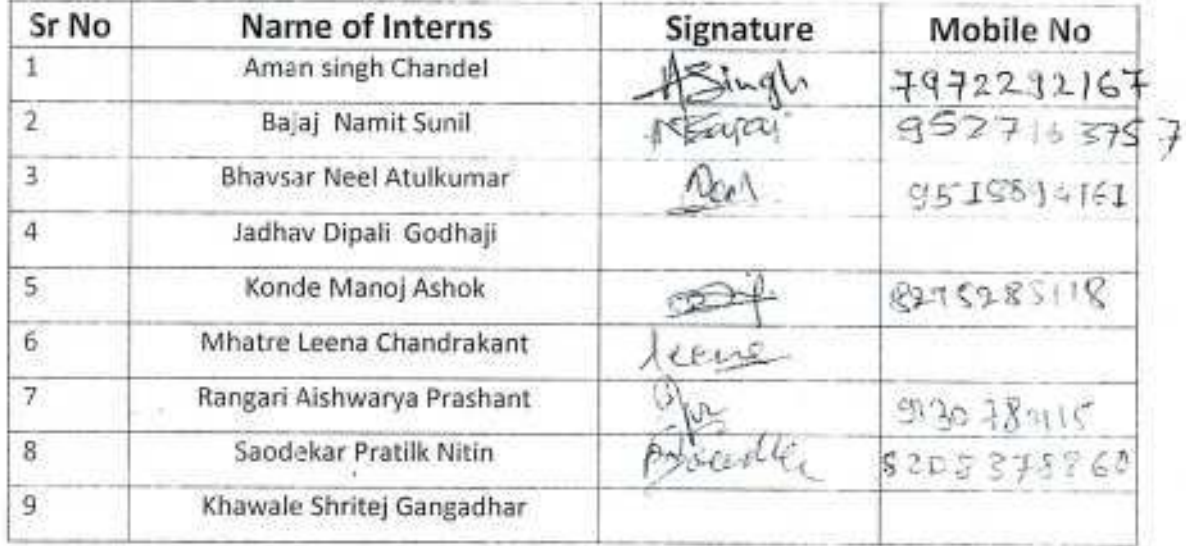 Sr No Name of Interns Signature Mobile No
1 Aman singh Chandel ASingh 7972292167
2 Bajaj Namit Sunil 9527163757
3 Bhavsar Neel Atulkumar Neel
4 Jadhav Dipali Godhaji
5 Konde Manoj Ashok 8275285118
6 Mhatre Leena Chandrakant leena
7 Rangari Aishwarya Prashant
8 Saodekar Pratilk Nitin
9 Khawale Shritej Gangadhar